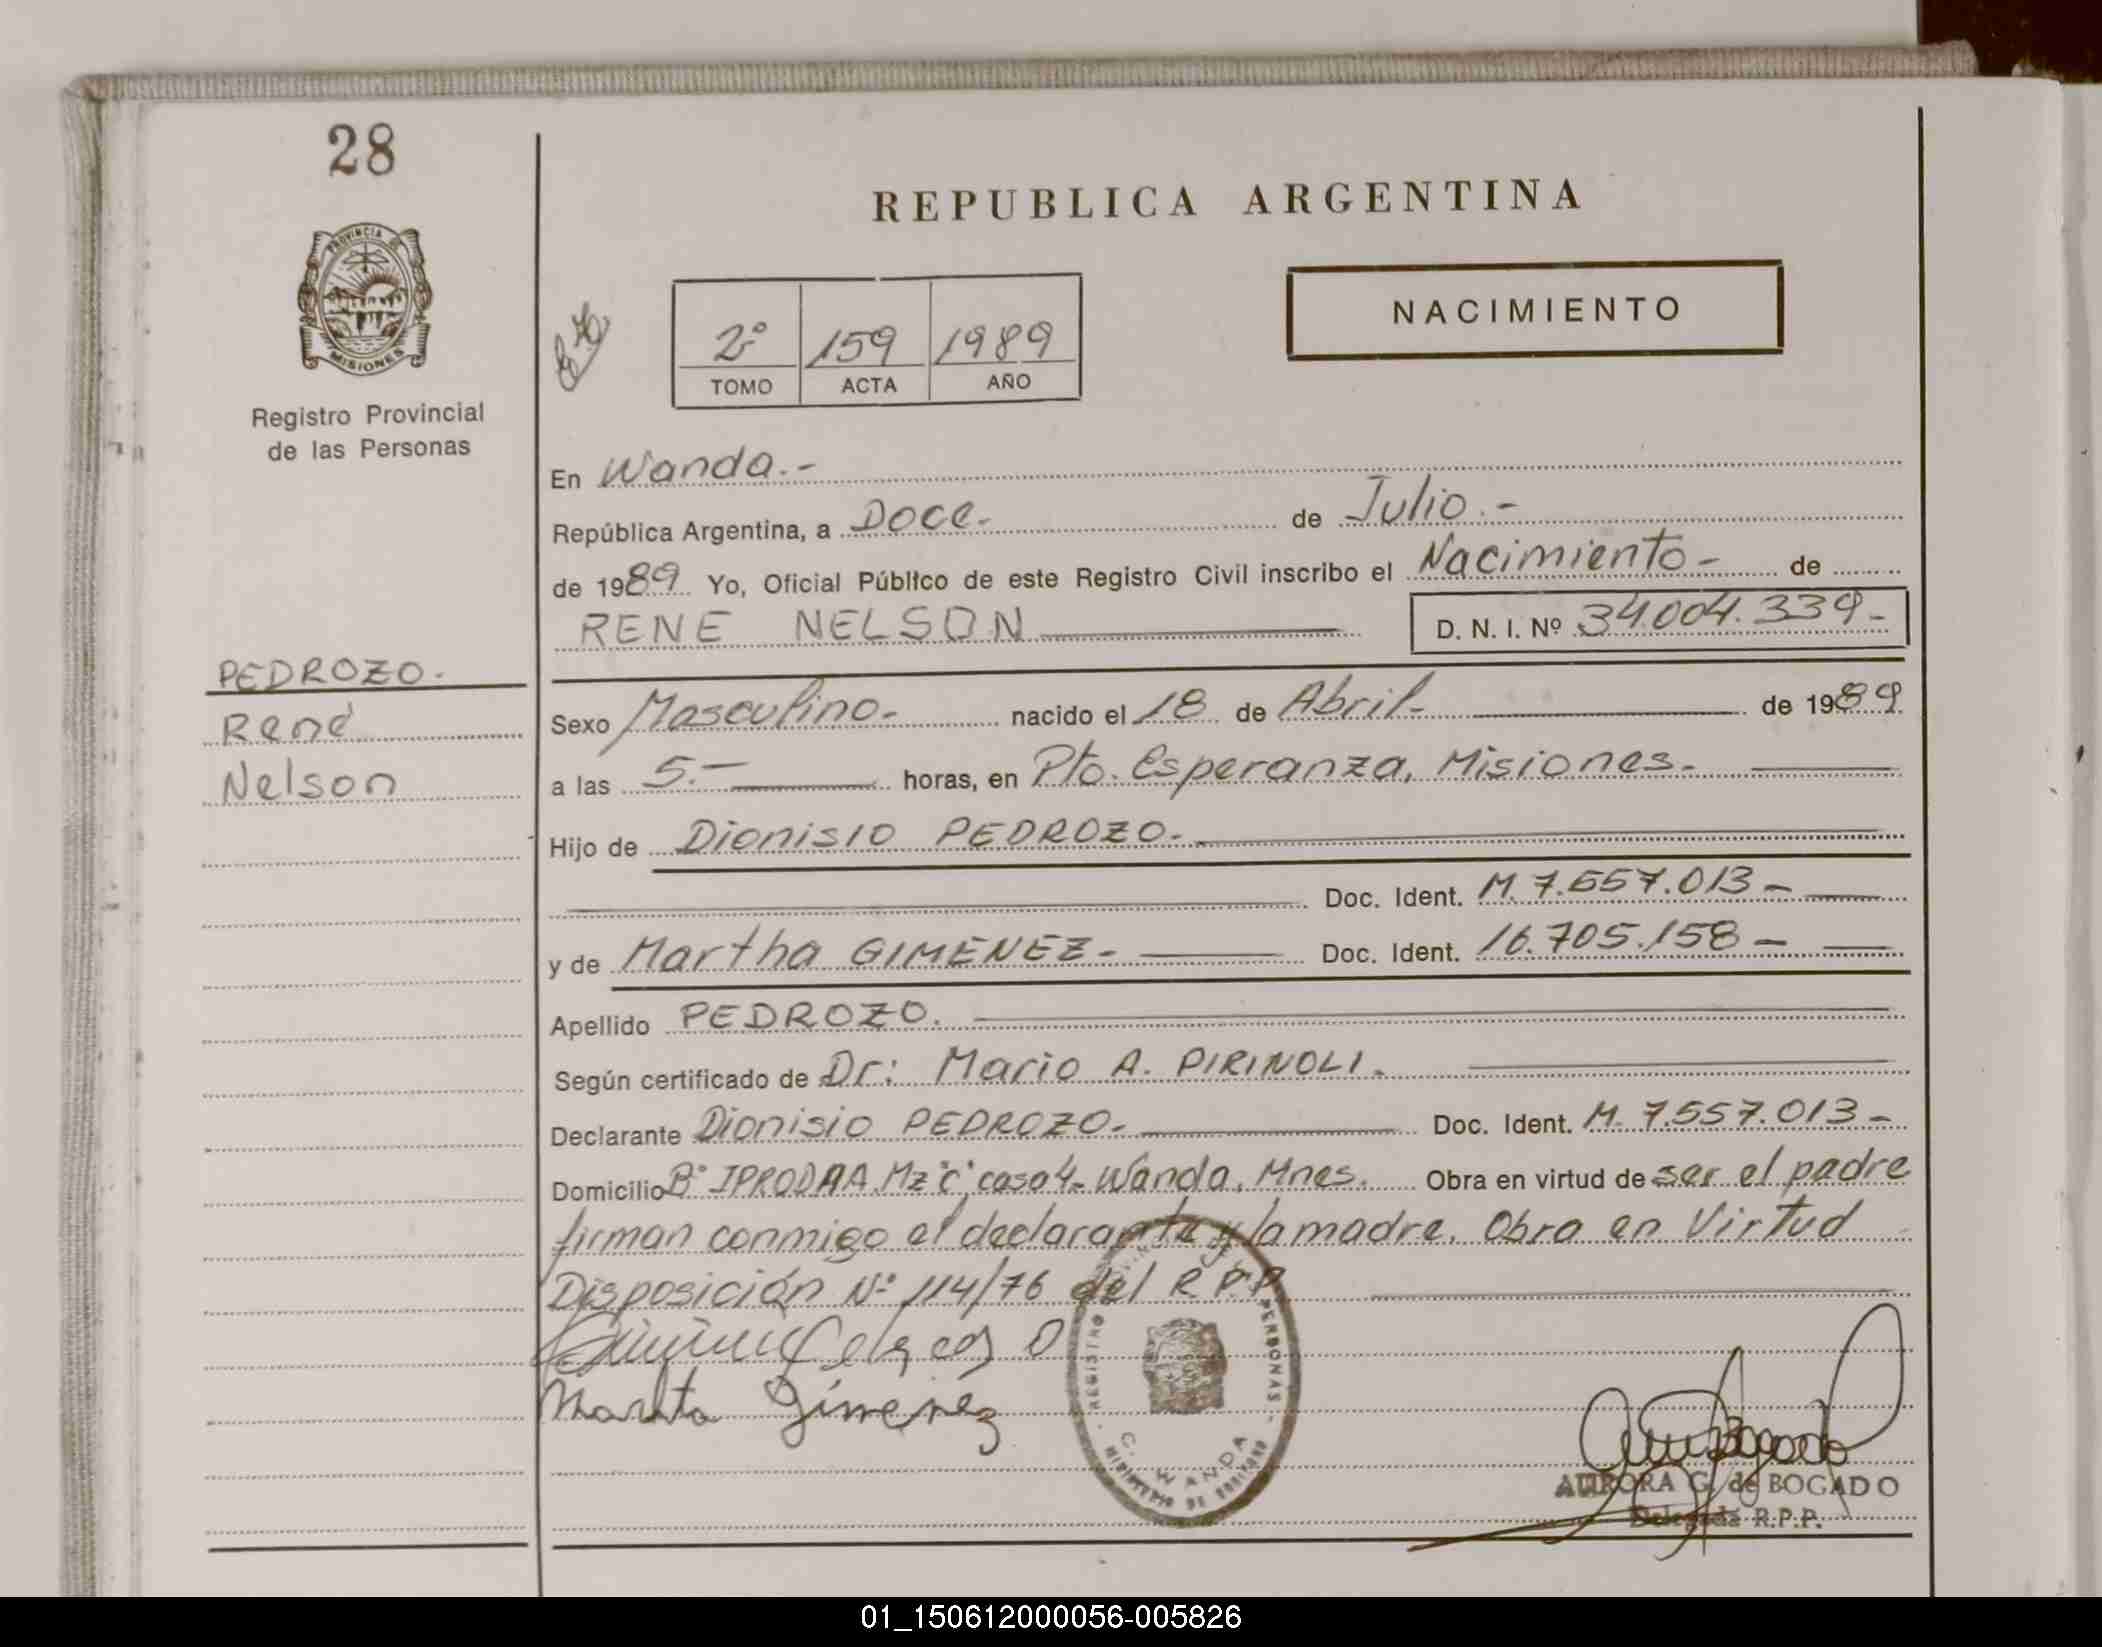 28
REPUBLICA ARGENTINA
PROVINCIA DE
MISIONES
Registro Provincial
de las Personas
2º 159 1989
TOMO ACTA AÑO
NACIMIENTO
En Wanda.-
República Argentina, a Doce.- de Julio.-
de 1989 Yo, Oficial Público de este Registro Civil inscribo el Nacimiento- de
RENE NELSON D. N. I. Nº 34.004.339-
PEDROZO.
René
Nelson
Sexo Masculino- nacido el 18 de Abril- de 1989
a las 5.- horas, en Pto. Esperanza, Misiones.-
Hijo de Dionisio PEDROZO.-
Doc. Ident. M. 7.557.013-
y de Martha GIMENEZ- Doc. Ident. 16.705.158-
Apellido PEDROZO.
Según certificado de Dr: Mario A. PIRINOLI.
Declarante Dionisio PEDROZO.- Doc. Ident. M. 7.557.013-
Domicilio Bº IPRODHA Mz "C" casa 4- Wanda, Mnes. Obra en virtud de ser el padre
firman conmigo el declarante y la madre. Obra en Virtud
Disposición Nº 114/76 del R.P.P
Marta Gimenez
REGISTRO PERSONAS
C. WANDA
MINISTERIO DE GOBIERNO
AURORA G. de BOGADO
Delegada R.P.P.
01_150612000056-005826